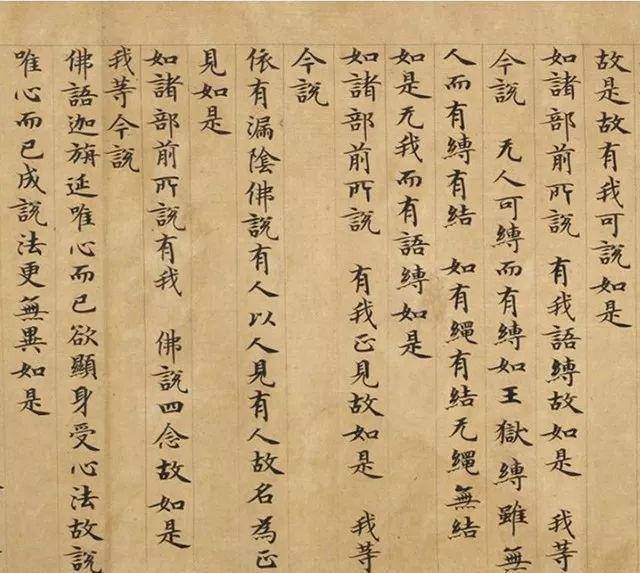 故是故有我可說如是
如諸部前所說 有我語縛故如是 我等
今說 无人可縛而有縛如王獄縛雖無
人而有縛有結 如有繩有結无繩無結
如是无我而有語縛如是
如諸部前所說 有我正見故如是 我等
今說
依有漏陰佛說有人以人見有人故名為正
見如是
如諸部前所說有我 佛說四念故如是
我等今說
佛語迦旃延唯心而已欲顯身受心法故說
唯心而已成說法更無異如是